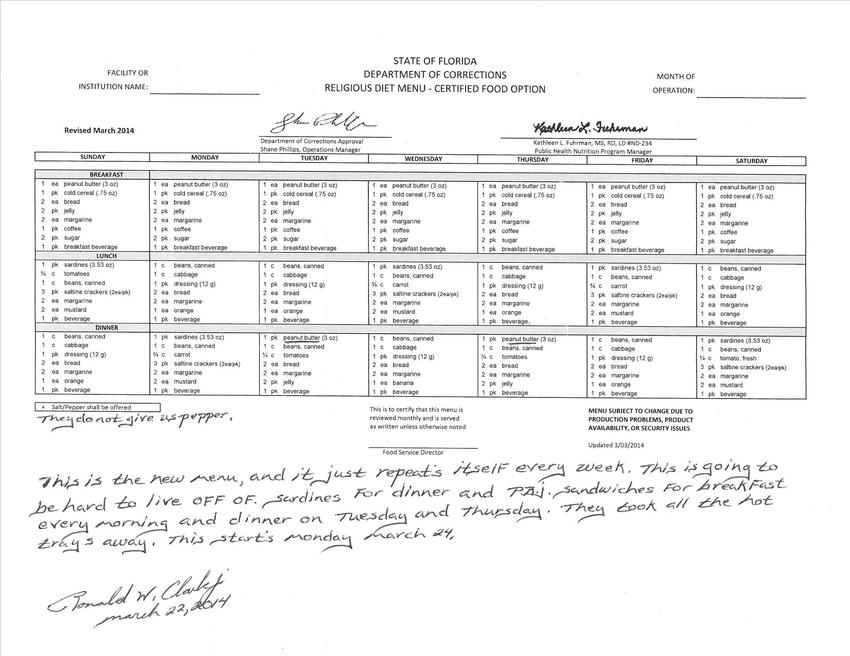 STATE OF FLORIDA
DEPARTMENT OF CORRECTIONS
RELIGIOUS DIET MENU - CERTIFIED FOOD OPTION
FACILITY OR
INSTITUTION NAME:
MONTH OF
OPERATION:
Revised March 2014
Department of Corrections Approval
Shane Phillips, Operations Manager
Kathleen L. Fuhrman
Kathleen L. Fuhrman, MS, RD, LD #ND-234
Public Health Nutrition Program Manager
SUNDAY MONDAY TUESDAY WEDNESDAY THURSDAY FRIDAY SATURDAY
BREAKFAST
1 ea peanut butter (3 oz) 1 ea peanut butter (3 oz) 1 ea peanut butter (3 oz) 1 ea peanut butter (3 oz) 1 ea peanut butter (3 oz) 1 ea peanut butter (3 oz) 1 ea peanut butter (3 oz)
1 pk cold cereal (.75 oz) 1 pk cold cereal (.75 oz) 1 pk cold cereal (.75 oz) 1 pk cold cereal (.75 oz) 1 pk cold cereal (.75 oz) 1 pk cold cereal (.75 oz) 1 pk cold cereal (.75 oz)
2 ea bread 2 ea bread 2 ea bread 2 ea bread 2 ea bread 2 ea bread 2 ea bread
2 pk jelly 2 pk jelly 2 pk jelly 2 pk jelly 2 pk jelly 2 pk jelly 2 pk jelly
2 ea margarine 2 ea margarine 2 ea margarine 2 ea margarine 2 ea margarine 2 ea margarine 2 ea margarine
1 pk coffee 1 pk coffee 1 pk coffee 1 pk coffee 1 pk coffee 1 pk coffee 1 pk coffee
2 pk sugar 2 pk sugar 2 pk sugar 2 pk sugar 2 pk sugar 2 pk sugar 2 pk sugar
1 pk breakfast beverage 1 pk breakfast beverage 1 pk breakfast beverage 1 pk breakfast beverage 1 pk breakfast beverage 1 pk breakfast beverage 1 pk breakfast beverage
LUNCH
1 pk sardines (3.53 oz) 1 c beans, canned 1 c beans, canned 1 pk sardines (3.53 oz) 1 c beans, canned 1 pk sardines (3.53 oz) 1 c beans, canned
¾ c tomatoes 1 c cabbage 1 c cabbage 1 c beans, canned 1 c cabbage 1 c beans, canned 1 c cabbage
1 c beans, canned 1 pk dressing (12 g) 1 pk dressing (12 g) ¾ c carrot 1 pk dressing (12 g) ¾ c carrot 1 pk dressing (12 g)
3 pk saltine crackers (2ea/pk) 2 ea bread 2 ea bread 3 pk saltine crackers (2ea/pk) 2 ea bread 3 pk saltine crackers (2ea/pk) 2 ea bread
2 ea margarine 2 ea margarine 2 ea margarine 2 ea margarine 2 ea margarine 2 ea margarine 2 ea margarine
2 ea mustard 1 ea orange 1 ea orange 2 ea mustard 1 ea orange 2 ea mustard 1 ea orange
1 pk beverage 1 pk beverage 1 pk beverage 1 pk beverage 1 pk beverage. 1 pk beverage 1 pk beverage
DINNER
1 c beans, canned 1 pk sardines (3.53 oz) 1 pk peanut butter (3 oz) 1 c beans, canned 1 pk peanut butter (3 oz) 1 c beans, canned 1 pk sardines (3.53 oz)
1 c cabbage 1 c beans, canned 1 c beans, canned 1 c cabbage 1 c beans, canned 1 c cabbage 1 c beans, canned
1 pk dressing (12 g) ¾ c carrot ¾ c tomatoes 1 pk dressing (12 g) ¾ c tomatoes 1 pk dressing (12 g) ¾ c tomato, fresh
2 ea bread 3 pk saltine crackers (2ea/pk) 2 ea bread 2 ea bread 2 ea bread 2 ea bread 3 pk saltine crackers (2ea/pk)
2 ea margarine 2 ea margarine 2 ea margarine 2 ea margarine 2 ea margarine 2 ea margarine 2 ea margarine
1 ea orange 2 ea mustard 2 pk jelly 1 ea banana 2 pk jelly 1 ea orange 2 ea mustard
1 pk beverage 1 pk beverage 1 pk beverage 1 pk beverage 1 pk beverage 1 pk beverage 1 pk beverage
+ Salt/Pepper shall be offered
They do not give us pepper.
This is to certify that this menu is
reviewed monthly and is served
as written unless otherwise noted
Food Service Director
MENU SUBJECT TO CHANGE DUE TO
PRODUCTION PROBLEMS, PRODUCT
AVAILABILITY, OR SECURITY ISSUES
Updated 3/03/2014
This is the new menu, and it just repeat's itself every week. This is going to
be hard to live off of. Sardines for dinner and P.B.j. sandwiches for breakfast
every morning and dinner on Tuesday and Thursday. They took all the hot
trays away. This start's monday march 24,
Ronald W. Clark jr
march 22, 2014